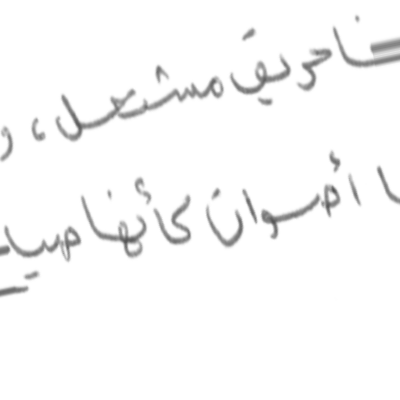 حريق مشتعل، و
ا أصوات كأنها صيا